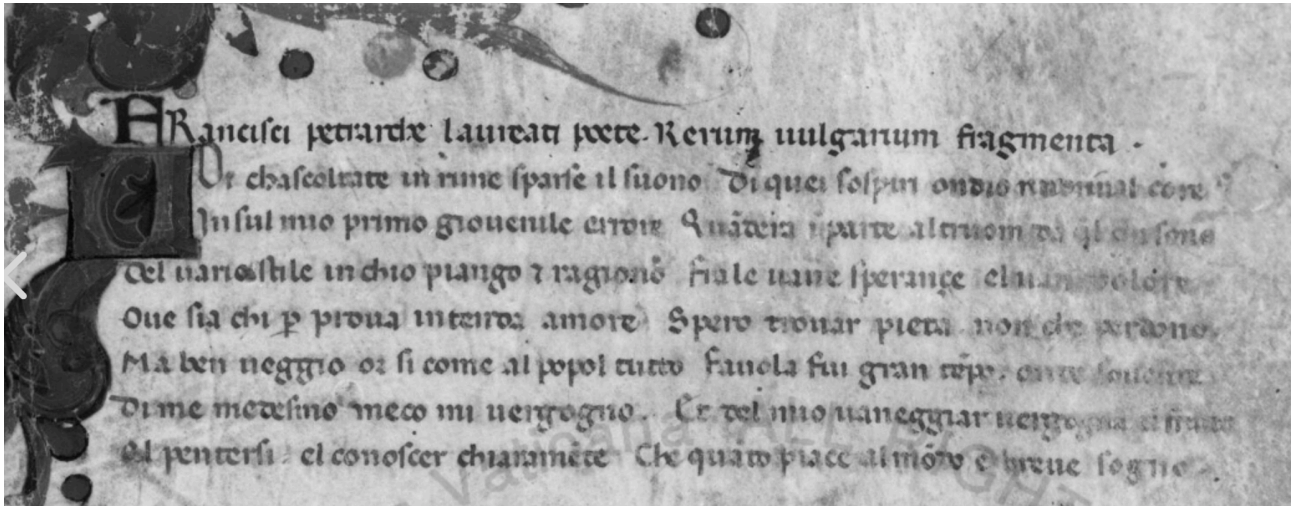 FRancisci petrarche laureati poete. Rerum uulgarium fragmenta.
VOi chascoltate in rime sparse il suono Di quei sospiri ondio nudriual core
In sul mio primo giouenile errore Quādera ī parte altruom da ql chi sono
Del uario stile in chio piango ⁊ ragiono fra le uane sperançe el uan dolore
Oue sia chi ꝑ proua intenda amore Spero trouar pieta non che perdono.
Ma ben ueggio or si come al popol tutto fauola fui gran tēpo. onde souente
Di me medesmo meco mi uergogno. Et del mio uaneggiar uergogna el frutto
El pentersi. el conoscer chiaramēte Che quāto piace al mōdo e breue sogno.
Vaticana ALL RIGHT